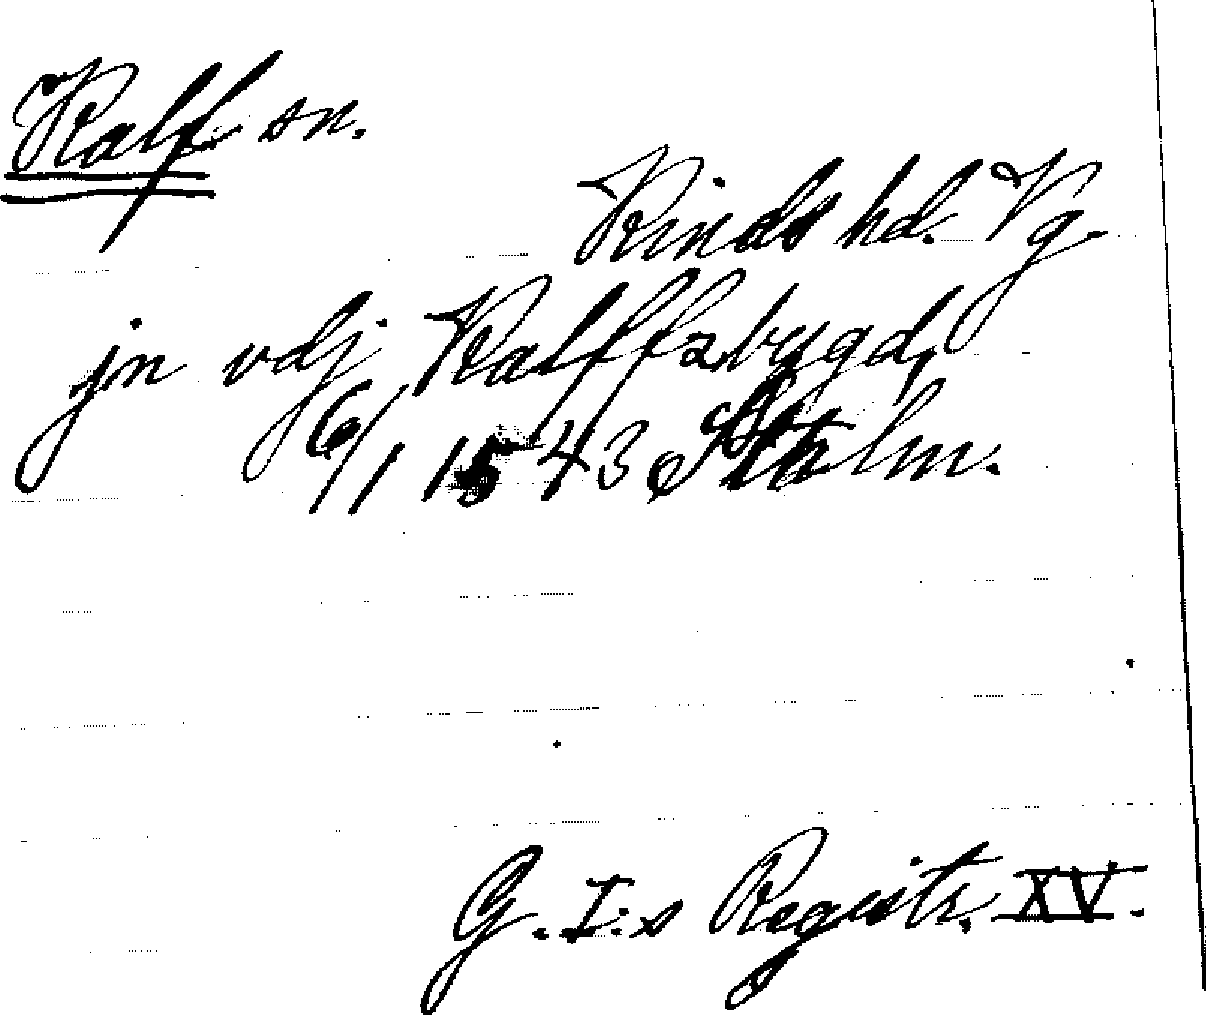 Kalf sn.
Kinds hd. Vg.
jn vdj Kalffzbygd,
6/1 1543 Sthlm.
G.I:s Registr. XV.